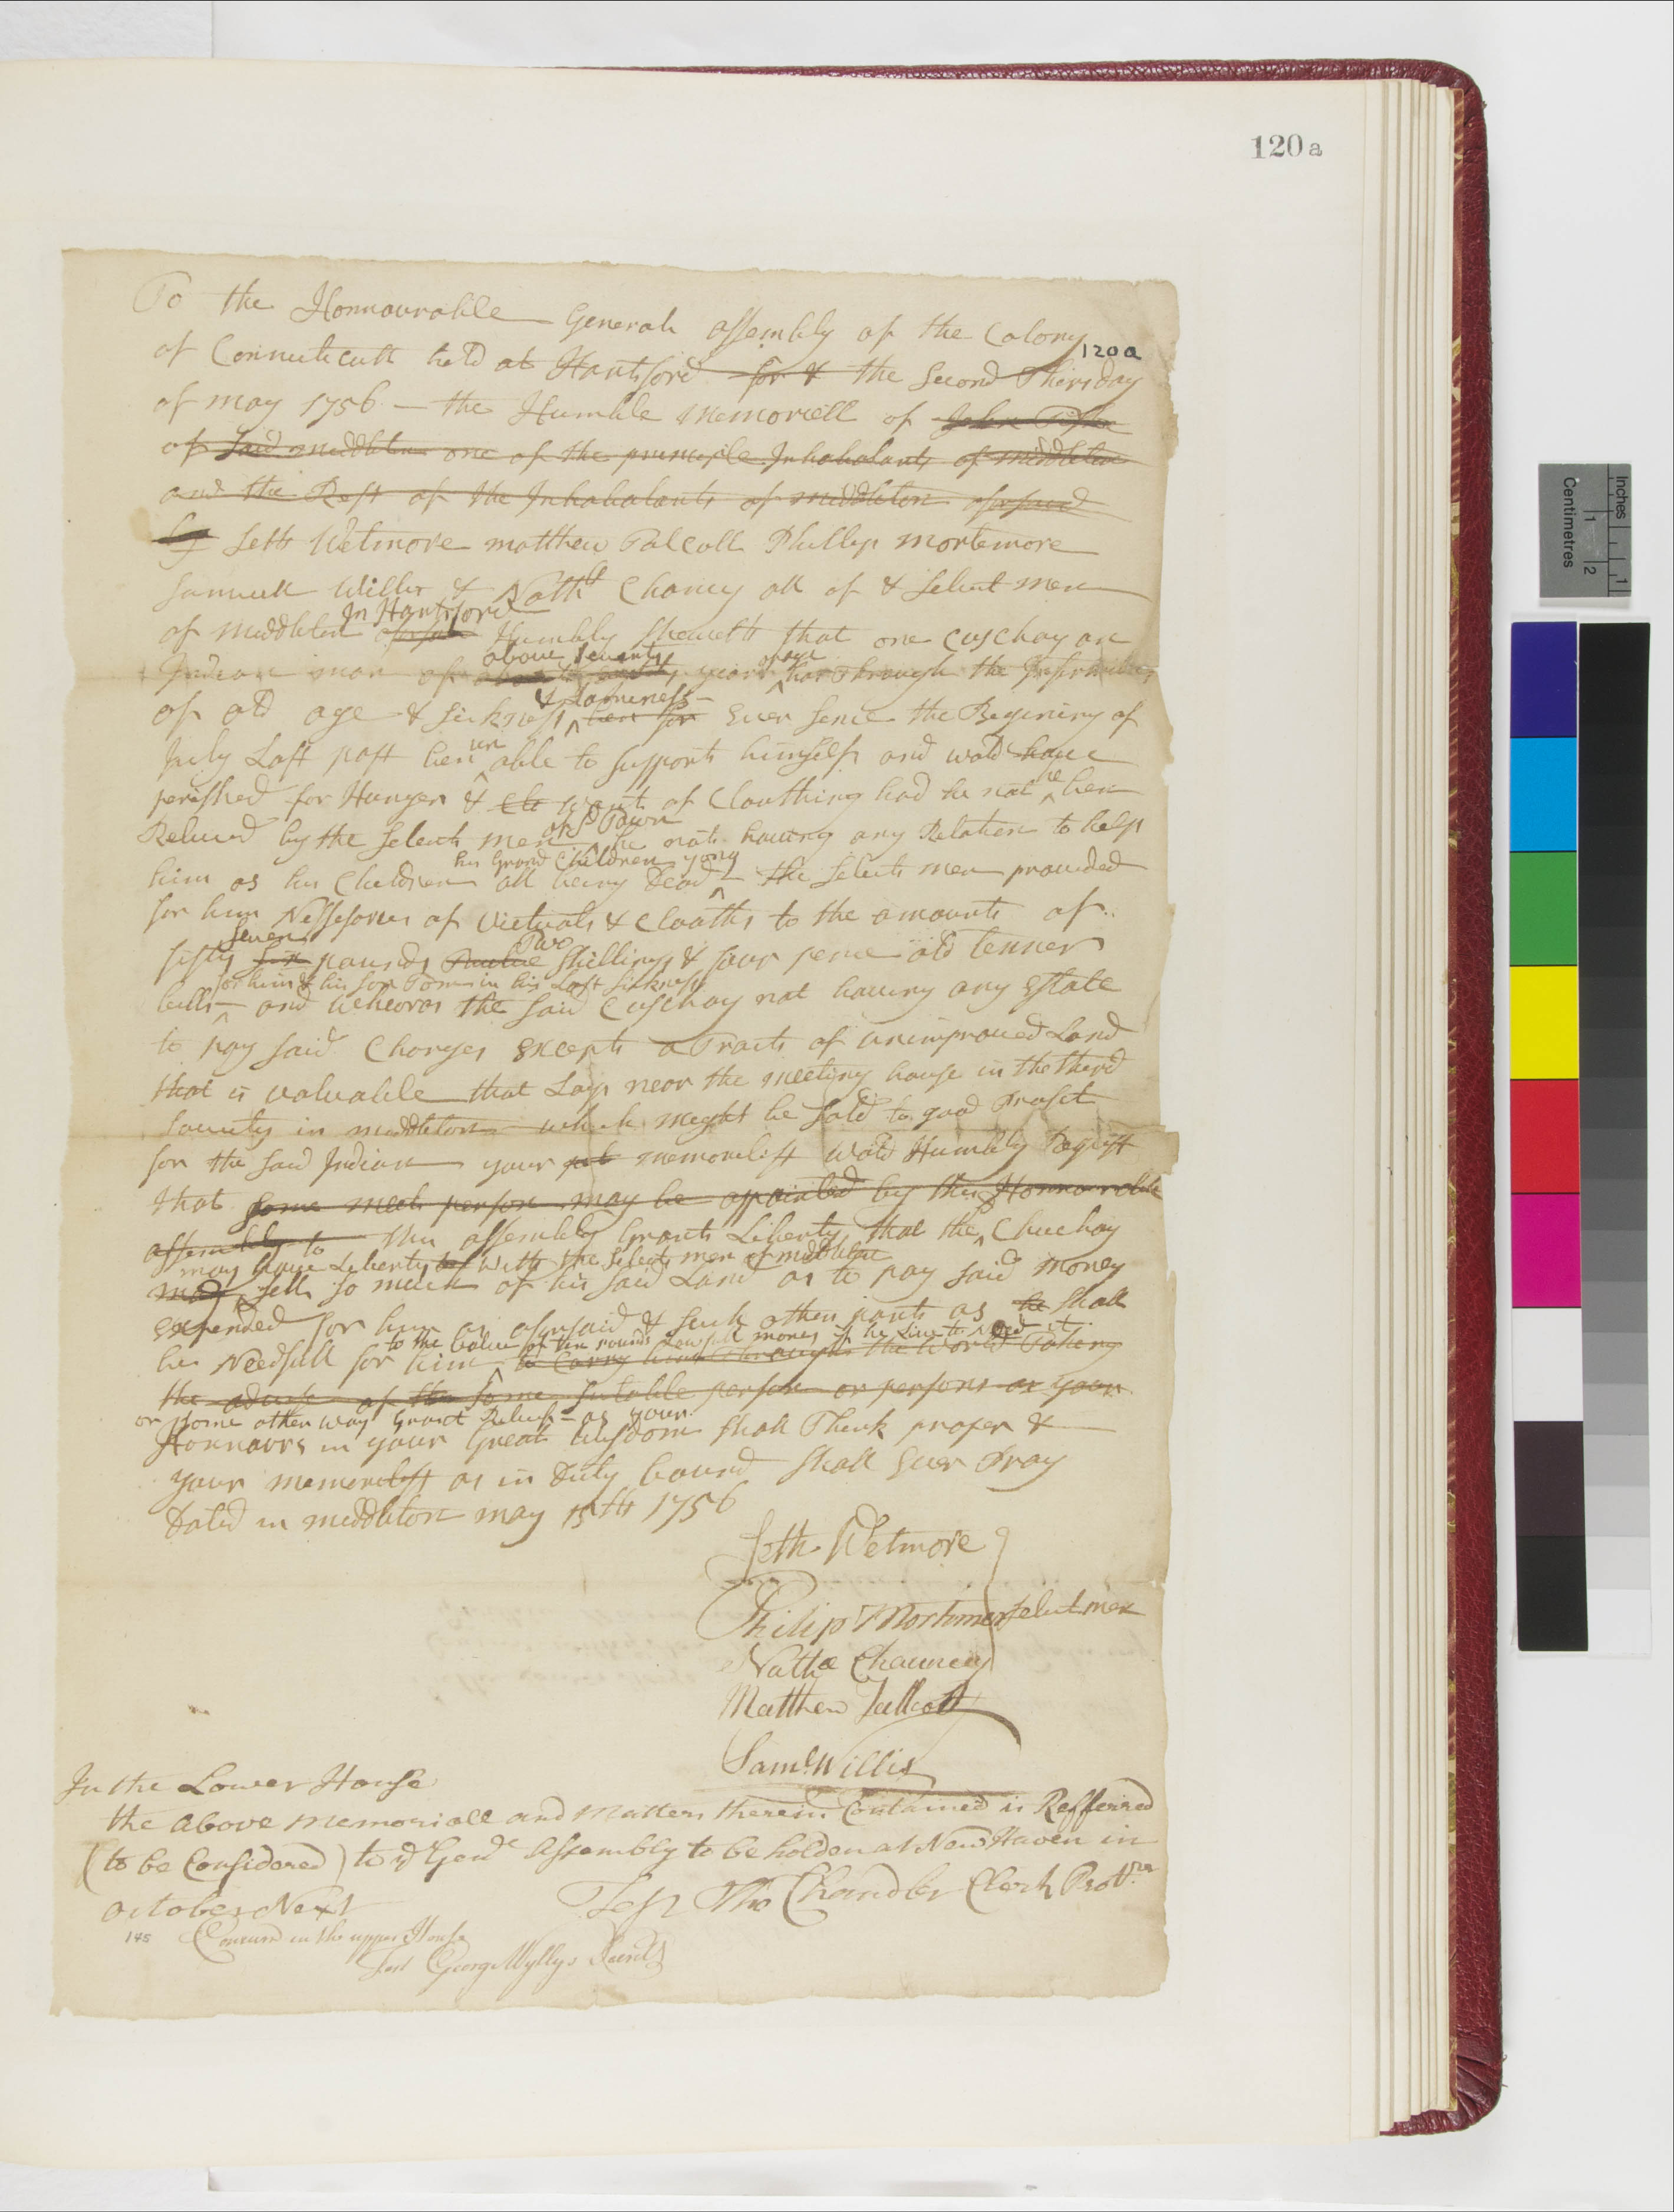 120a
To the Honnourable Generall assembly of the Colony
120a
of Connuticutt held at Hartsford for & the Second Thirsday
of may 1756 — the Humble memoriell of John
of Said middleton one of the principle Inhabatants of middleton
and the Rest of the Inhabatants of middleton aforsaid
by Seth Wetmore matthew Talcott Phillip mortemore
Samuell Willis & Nathll Chancy all of & Select men
In Hartsford
of middleton aforsaid Humbly sheweth that one Cuschay an
above seventy of age
Indian man of about years has Through the Infirmities
& Lameness
of old age & sickness ben for Ever sence the Begining of
un
July Last past ben able to support himself and wold have
ve
perished for Hunger & Clo want of Cloathing had he not ben
of sd Town
Releved by the select men he not having any Relation to help
his Grand Children yong
him as his Children all being Dead the select men provided
for him Nessesaries of victuals & Cloaths to the amount of
seven Two
fifty six pounds Twelve shillings & four pence old tenner
for him & his son Tom in his Last sickness
bills — and wheoras the said Cuschay not having any Estate
to pay said Charges Except a Tract of unimproved Land
that is valuable that Lays near the meeting house in the third
society in middleton which might be sold to good Profit
for the said Indian your pet memorelist wold Humbly Request
that some meet person may be appointed by this Honnourable
assembly to this assembly Grant Liberty that the sd Chuchay
may have Liberty to with the select men of middleton
may sell so much of his said Land as to pay said money
Expended for him as aforsaid & such other parts as he shall
to the value of ten pounds Lawfull money if he Live to need it
be Needfull for him to Carry him Through the World Taking
the advise of the some sutable person or persons as your
or some other way Grant Releif — as your
Honnours in your Great wisdom shall Think proper &
your memorelist as in Duty bound shall Ever Pray
Dated in middleton may 15th 1756
Seth Wetmore
Philip Mortimer Select men
Natha Chauncey
Matthew Talcott
Saml Willis
In the Lower House
the above memoriall and matters therein Contained is Refferred
(to be Considered) to ye Genll Assembly to be holden at New Haven in
October Next Test Tho Chandler Clerk
145 Concurd in the upper House
Test George Wyllys Secrety